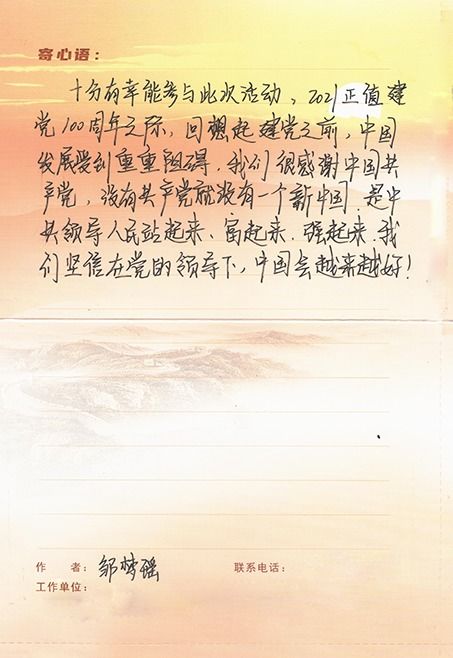 寄心语：
十分有幸能参与此次活动，2021正值建
党100周年之际，回想起建党之前，中国
发展受到重重阻碍，我们很感谢中国共
产党，没有共产党就没有一个新中国.是中
共领导人民站起来、富起来.强起来.我
们坚信在党的领导下，中国会越来越好！
作 者：邹梦瑶 联系电话：
工作单位：